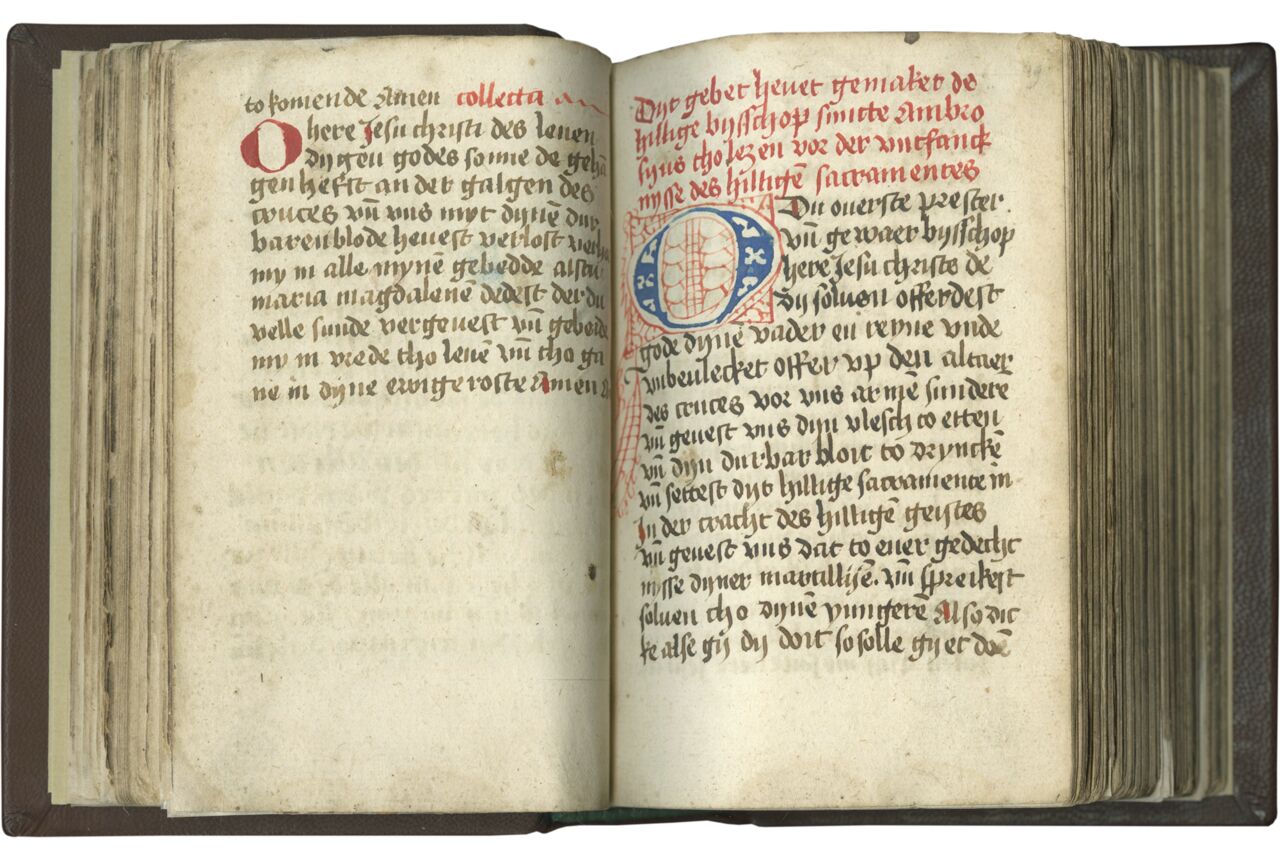 to komende Amen collecta
O here Jesu christi des leuen
dygen godes sonne de gehā
gen hefst an der galgen des
cruces vn̄ vns myt dynē dur
baren blode heuest verlost
my in alle mynē gebedde alstu
maria magdalenē dedest der du
velle sunde vergeuest vn̄
my in vrede tho leuē vn̄ tho ga
ne in dyne ewige roste Amen
Dyt gebet heuet gemaket de
hillige bysschop sūncte Ambro
syus tho lezen vor der vntfanck
nysse des hilligē sacramentes
O Du ouerste prester
vn̄ gewaer bysschop
here Jesu christe de
dy soluen offerdest
gode dynē vader en reyne vnde
vnbeulecket offer vp den altaer
des cruces vor vns armē sundere
vn̄ geuest vns dyn vlesch to etten
vn̄ dyn durbar bloit to dryncken
vn̄ settest dyt hillige sacramente in
In der cracht des hilligē geistes
vn̄ geuest vns dat to ener gedecht
nysse dyner martilijē. vn̄ spreikest
soluen tho dynē yungerē Also dic
ke alse gy dy doit so solle gy et doē